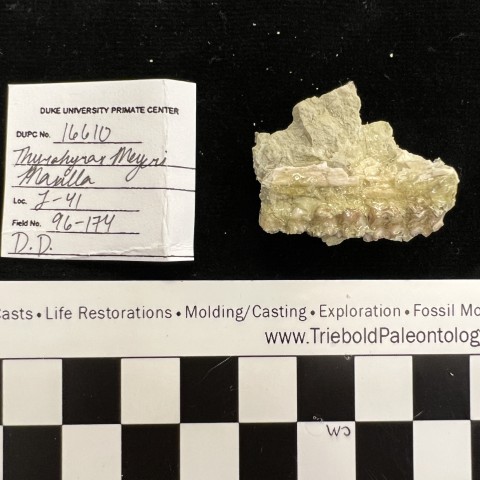 DUKE UNIVERSITY PRIMATE CENTER
DUPC No. 16610
Thyrohyrax Meyeri
Maxilla
Loc. J-41
Field No. 96-174
D.D.
asts • Life Restorations • Molding/Casting • Exploration • Fossil Mo
www.TrieboldPaleontolog
CM